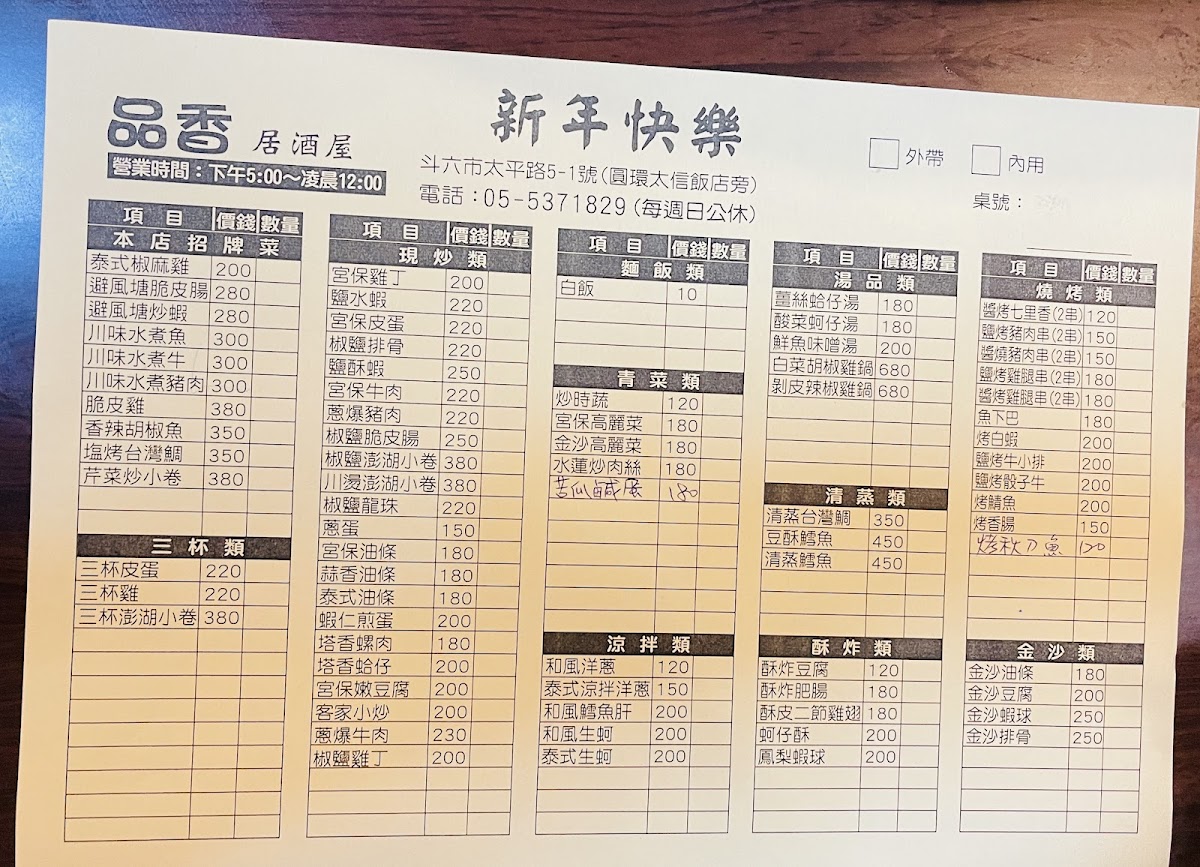 品香 居酒屋
營業時間：下午5:00～凌晨12:00
新年快樂
斗六市太平路5-1號(圓環太信飯店旁)
電話：05-5371829(每週日公休)
外帶 內用
桌號：
項目 價錢 數量
本店招牌菜
泰式椒麻雞 200
避風塘脆皮腸 280
避風塘炒蝦 280
川味水煮魚 300
川味水煮牛 300
川味水煮豬肉 300
脆皮雞 380
香辣胡椒魚 350
塩烤台灣鯛 350
芹菜炒小卷 380
三杯類
三杯皮蛋 220
三杯雞 220
三杯澎湖小卷 380
項目 價錢 數量
現炒類
宮保雞丁 200
鹽水蝦 220
宮保皮蛋 220
椒鹽排骨 220
鹽酥蝦 250
宮保牛肉 220
蔥爆豬肉 220
椒鹽脆皮腸 250
椒鹽澎湖小卷 380
川燙澎湖小卷 380
椒鹽龍珠 220
蔥蛋 150
宮保油條 180
蒜香油條 180
泰式油條 180
蝦仁煎蛋 200
塔香螺肉 180
塔香蛤仔 200
宮保嫩豆腐 200
客家小炒 200
蔥爆牛肉 230
椒鹽雞丁 200
項目 價錢 數量
麵飯類
白飯 10
青菜類
炒時蔬 120
宮保高麗菜 180
金沙高麗菜 180
水蓮炒肉絲 180
苦瓜鹹蛋 180
涼拌類
和風洋蔥 120
泰式涼拌洋蔥 150
和風鱈魚肝 200
和風生蚵 200
泰式生蚵 200
項目 價錢 數量
湯品類
薑絲蛤仔湯 180
酸菜蚵仔湯 180
鮮魚味噌湯 200
白菜胡椒雞鍋 680
剝皮辣椒雞鍋 680
清蒸類
清蒸台灣鯛 350
豆酥鱈魚 450
清蒸鱈魚 450
酥炸類
酥炸豆腐 120
酥炸肥腸 180
酥皮二節雞翅 180
蚵仔酥 200
鳳梨蝦球 200
項目 價錢 數量
燒烤類
醬烤七里香(2串) 120
鹽烤豬肉串(2串) 150
醬燒豬肉串(2串) 150
鹽烤雞腿串(2串) 180
醬烤雞腿串(2串) 180
魚下巴 180
烤白蝦 200
鹽烤牛小排 200
鹽烤骰子牛 200
烤鯖魚 200
烤香腸 150
烤秋刀魚 120
金沙類
金沙油條 180
金沙豆腐 200
金沙蝦球 250
金沙排骨 250